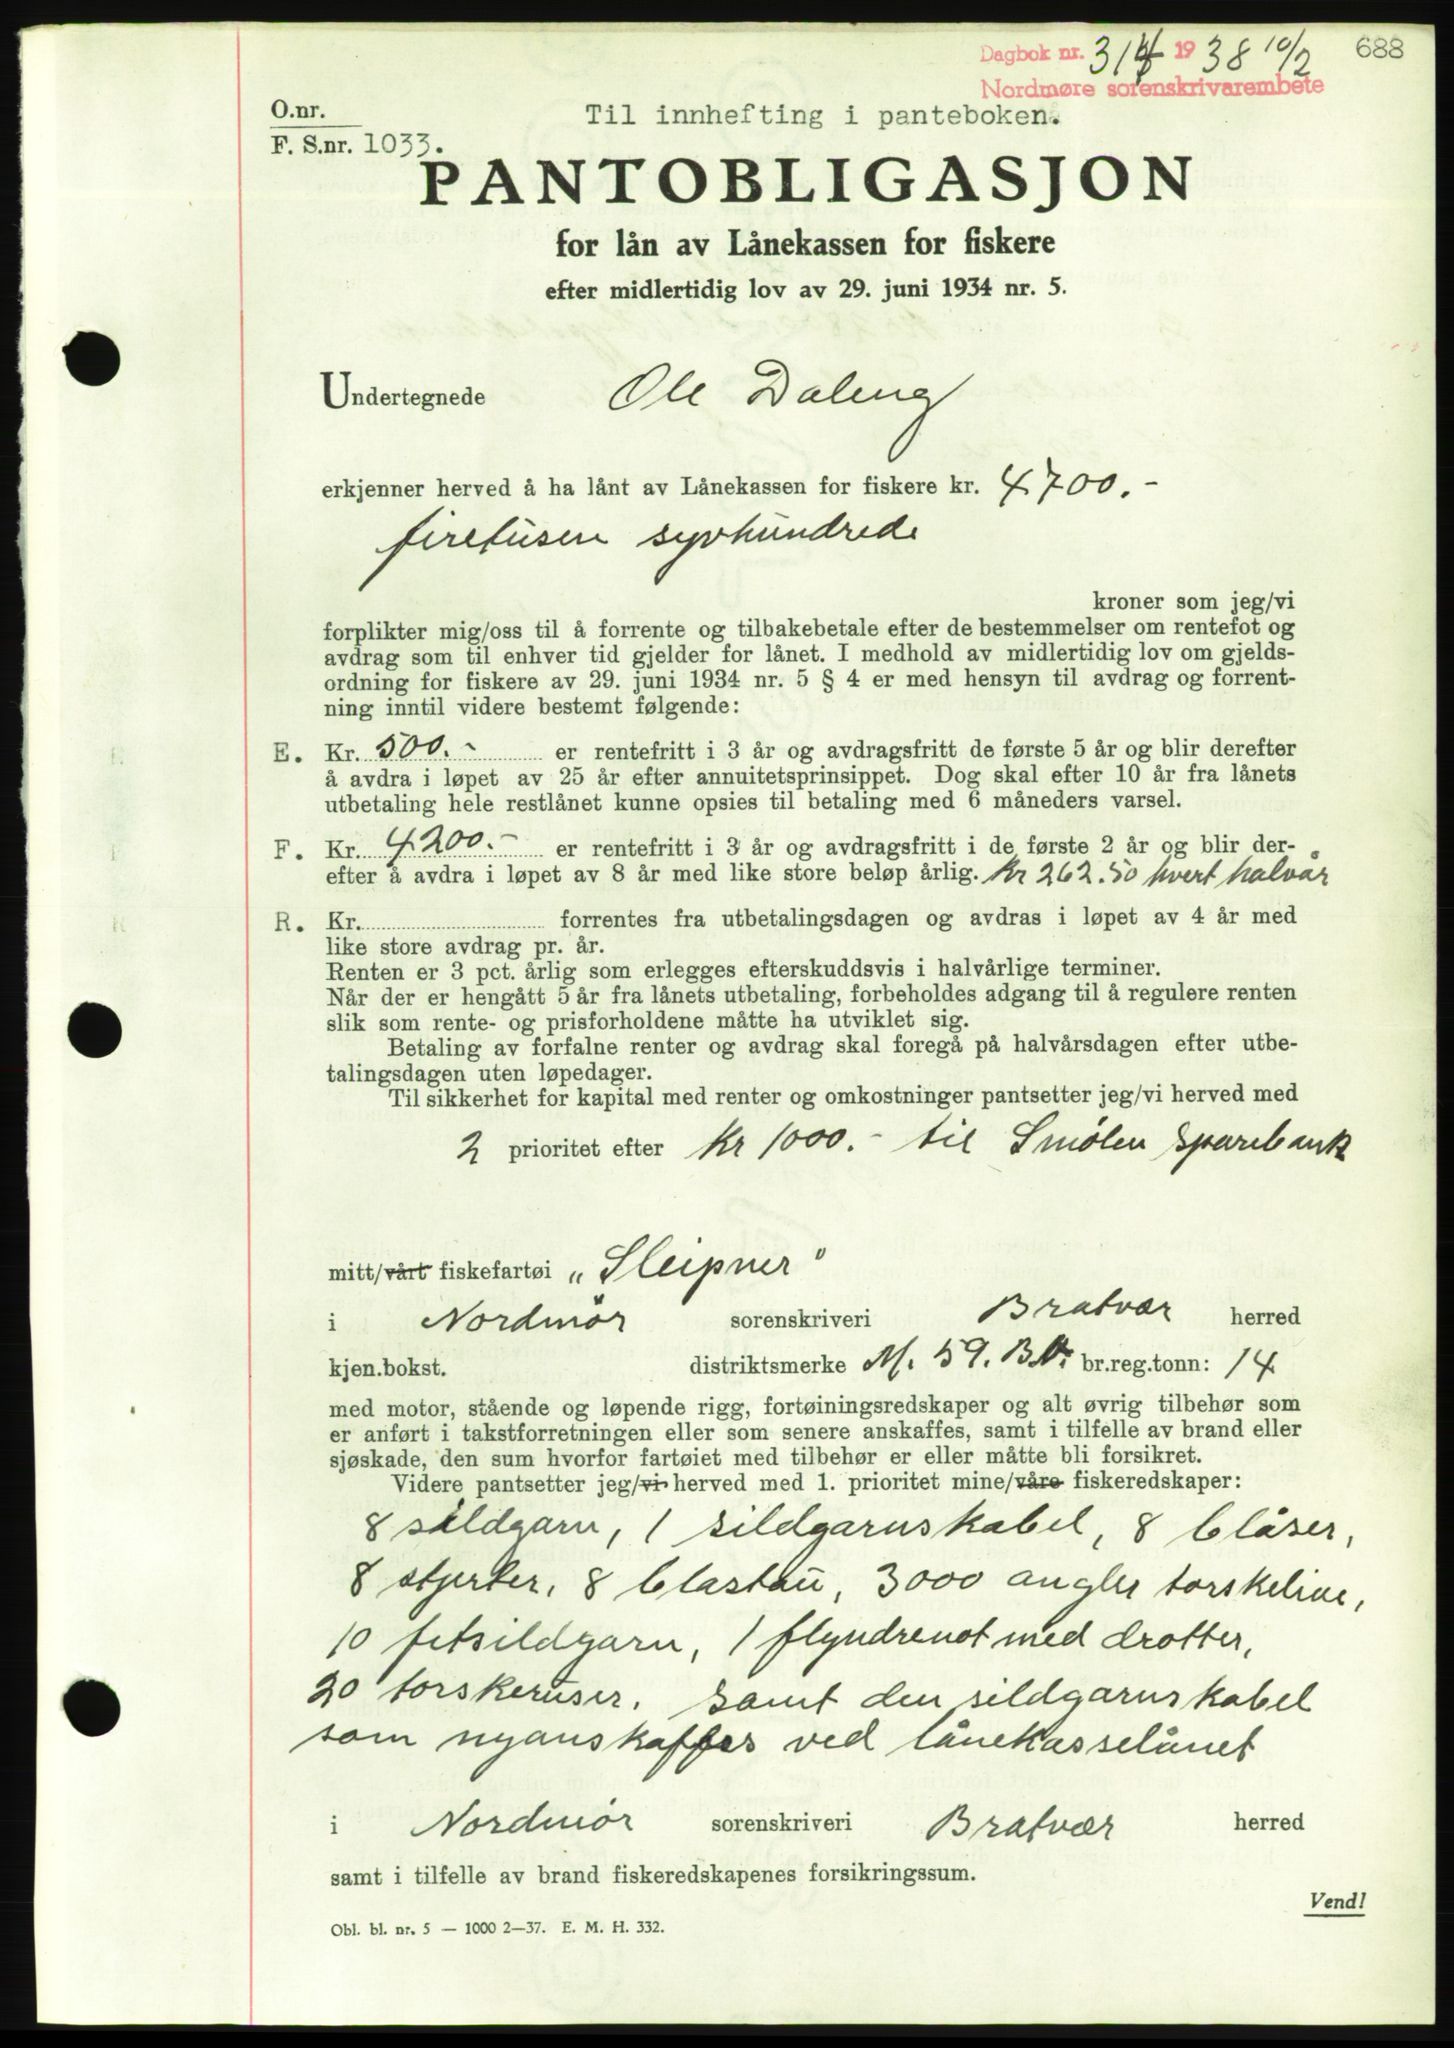 688
Dagbok nr. 314 1938 10/2
Nordmøre sorenskrivarembete
O.nr.
Til innhefting i panteboken.
F. S.nr. 1033.
PANTOBLIGASJON
for lån av Lånekassen for fiskere
efter midlertidig lov av 29. juni 1934 nr. 5.
Undertegnede Ole Daleng
erkjenner herved å ha lånt av Lånekassen for fiskere kr. 4700.-
firetusen syvhundrede
kroner som jeg/vi
forplikter mig/oss til å forrente og tilbakebetale efter de bestemmelser om rentefot og
avdrag som til enhver tid gjelder for lånet. I medhold av midlertidig lov om gjelds-
ordning for fiskere av 29. juni 1934 nr. 5 § 4 er med hensyn til avdrag og forrent-
ning inntil videre bestemt følgende:
E. Kr. 500.- er rentefritt i 3 år og avdragsfritt de første 5 år og blir derefter
å avdra i løpet av 25 år efter annuitetsprinsippet. Dog skal efter 10 år fra lånets
utbetaling hele restlånet kunne opsies til betaling med 6 måneders varsel.
F. Kr. 4200.- er rentefritt i 3 år og avdragsfritt i de første 2 år og blir der-
efter å avdra i løpet av 8 år med like store beløp årlig. Kr 262.50 hvert halvår
R. Kr. forrentes fra utbetalingsdagen og avdras i løpet av 4 år med
like store avdrag pr. år.
Renten er 3 pct. årlig som erlegges efterskuddsvis i halvårlige terminer.
Når der er hengått 5 år fra lånets utbetaling, forbeholdes adgang til å regulere renten
slik som rente- og prisforholdene måtte ha utviklet sig.
Betaling av forfalne renter og avdrag skal foregå på halvårsdagen efter utbe-
talingsdagen uten løpedager.
Til sikkerhet for kapital med renter og omkostninger pantsetter jeg/vi herved med
2 prioritet efter Kr 1000.- til Smølen Sparebank
mitt/vårt fiskefartøi "Sleipner"
i Nordmør sorenskriveri Bratvær herred
kjen.bokst. distriktsmerke M. 59. B.V. br.reg.tonn: 14
med motor, stående og løpende rigg, fortøiningsredskaper og alt øvrig tilbehør som
er anført i takstforretningen eller som senere anskaffes, samt i tilfelle av brand eller
sjøskade, den sum hvorfor fartøiet med tilbehør er eller måtte bli forsikret.
Videre pantsetter jeg/vi herved med 1. prioritet mine/våre fiskeredskaper:
8 sildgarn, 1 sildgarnskabel, 8 blåser,
8 stjerter, 8 blastau, 3000 angler torskeline,
10 fetsildgarn, 1 flyndrenot med drotter,
20 torskeruser. Samt den sildgarnskabel
som nyanskaffes ved lånekasselånet
i Nordmør sorenskriveri Bratvær herred
samt i tilfelle av brand fiskeredskapenes forsikringssum.
Vend!
Obl. bl. nr. 5 — 1000 2—37. E. M. H. 332.